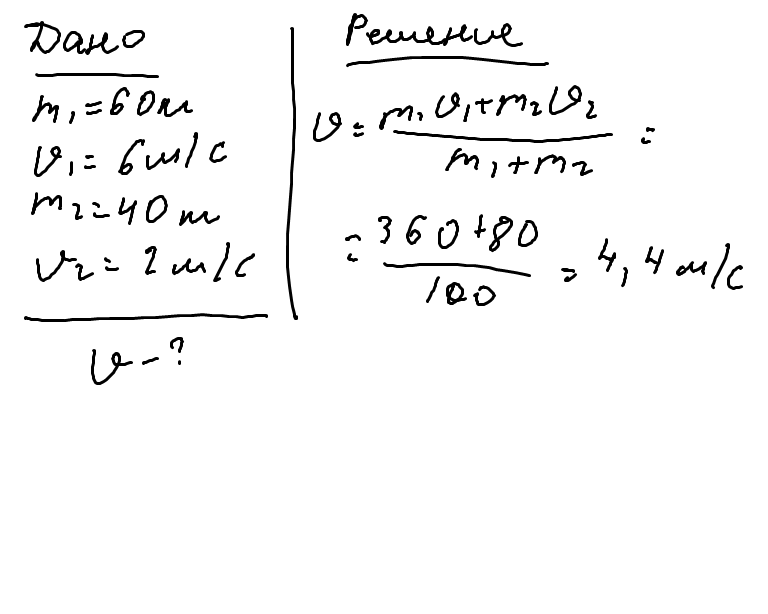 Дано
m₁=60т
υ₁=6м/с
m₂=40т
υ₂=2м/с
υ-?
Решение
υ=(m₁υ₁+m₂υ₂)/(m₁+m₂)=
=(360+80)/100=4,4м/с